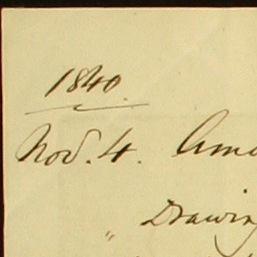 1840.
Nov. 4. Ame
" Drawin